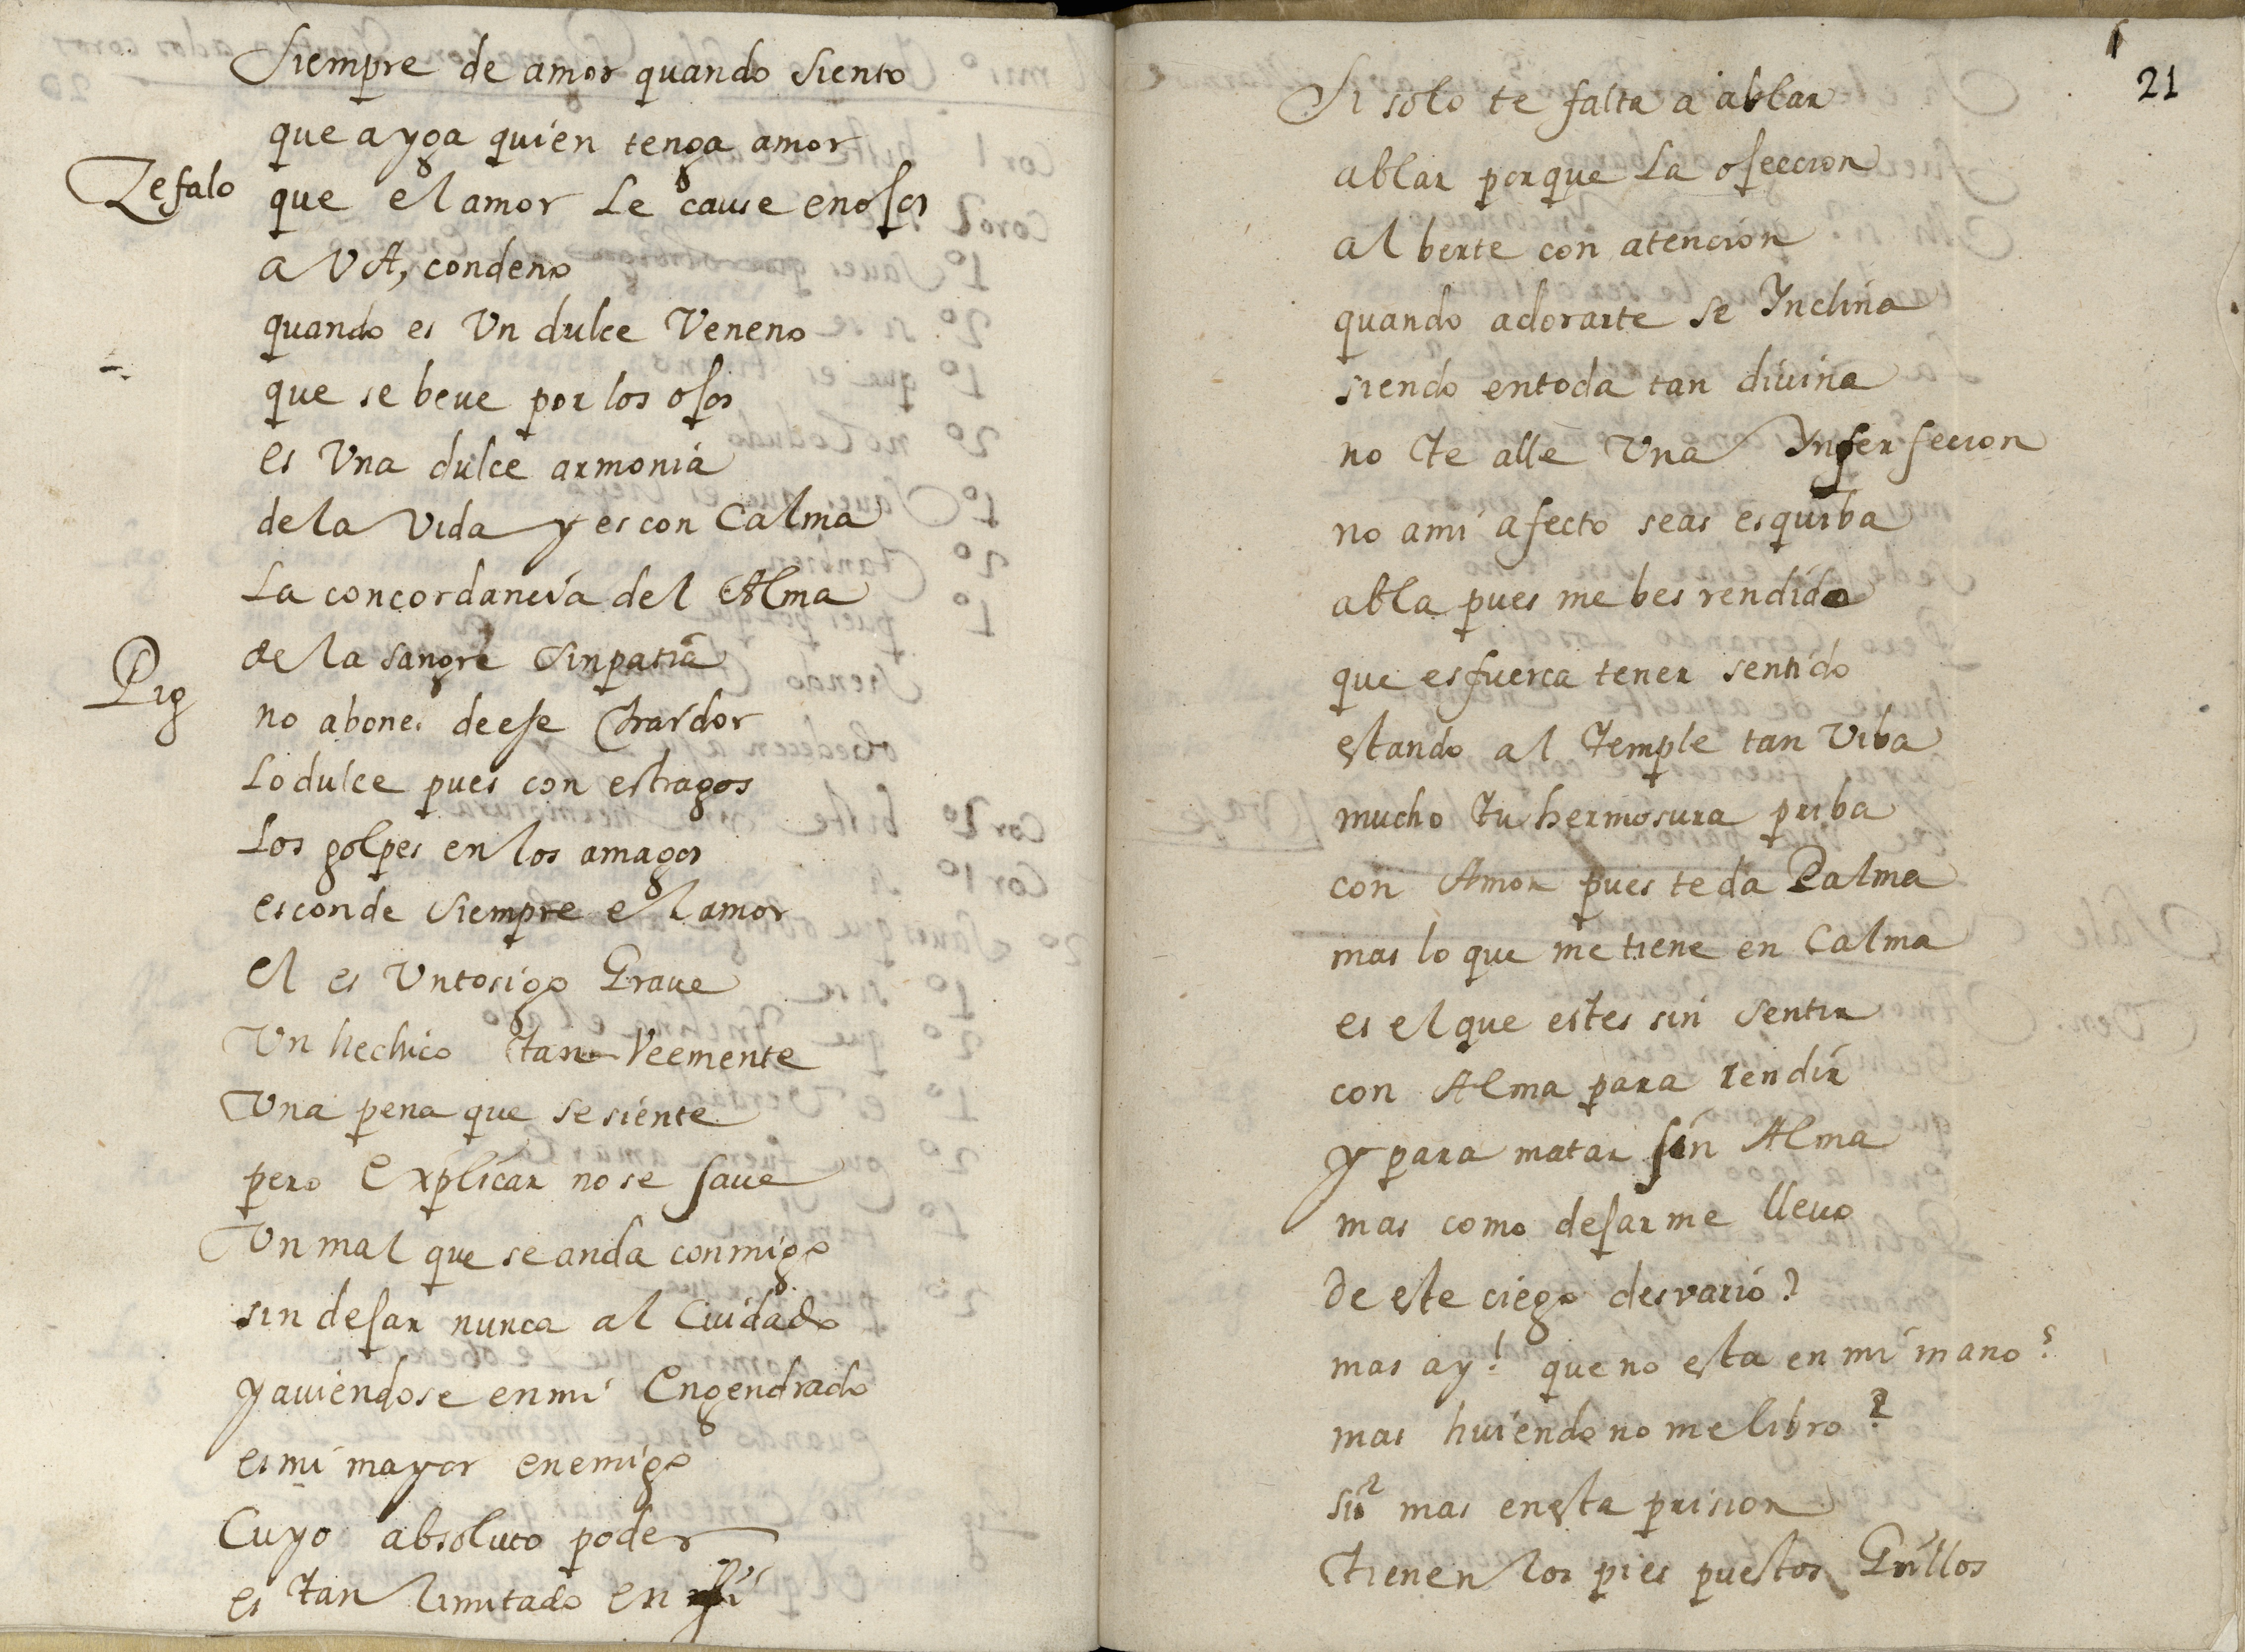 Siempre de amor quando siento
que ayga quien tenga amor
Zefalo que el amor Le cause enojos
a VA, condeno
quando es Vn dulce Veneno
que se beue por los ojos
es Vna dulce armonia
de la Vida y es con Calma
La concordancia del Alma
de la sangre sinpatia
Pig no abones de ese traidor
Lo dulce pues con estragos
Los golpes en los amagos
esconde siempre el amor
el es Vn tosigo Graue
Vn hechico tan Veemente
Vna pena que se siente
pero Explicar no se saue
Vn mal que se anda conmigo
sin dejar nunca al Cuidado
y auiendose en mi Engendrado
es mi mayor enemigo
Cuyo absoluto poder
es tan limitado en
21
Si solo te falta a ablar
ablar porque La ofeccion
al berte con atencion
quando adorarte se Ynclina
siendo en toda tan diuina
no te alle Vna Ynperfeccion
no a mi afecto seas esquiba
abla pues me bes rendido
que es fuerca tener sentido
estando al temple tan Viba
mucho tu hermosura priba
con Amor pues te da Palma
mas lo que me tiene en Calma
es el que estes sin sentir
con Alma para rendir
y para matar sin Alma
mas como dejarme lleuo
de este ciego desvario?
mas ay! que no esta en mi mano?
mas huiendo no me libro?
si? mas en esta prision
tienen los pies puestos Grillos